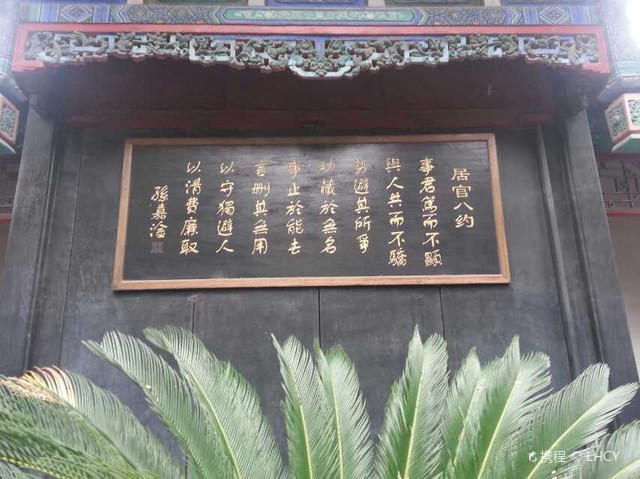 居官八约
事君篤而不顯
與人共而不驕
勢避其所爭
功藏於無名
事止於能去
言删其無用
以守獨避人
以清費廉取
孫嘉淦
携程 © LHCY